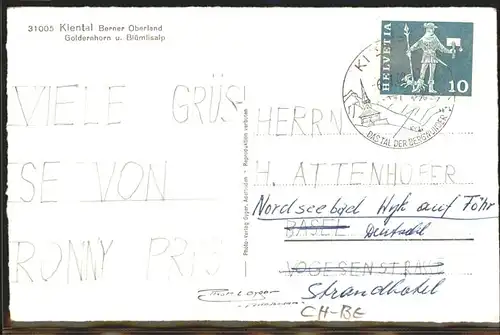 31005 Kiental Berner Oberland
Goldernhorn u. Blümlisalp
HELVETIA
10
KI
DAS TAL DER BERGBLUMEN
VIELE GRÜS
SE VON
RONNY
Reproduktion verboten
Photo-Verlag Gyger, Adelboden
HERRN
H. ATTENHOFER
Nordseebad Wyk auf Föhr
BASEL
VOGESENSTRASSE
Strandhotel
CH-BE